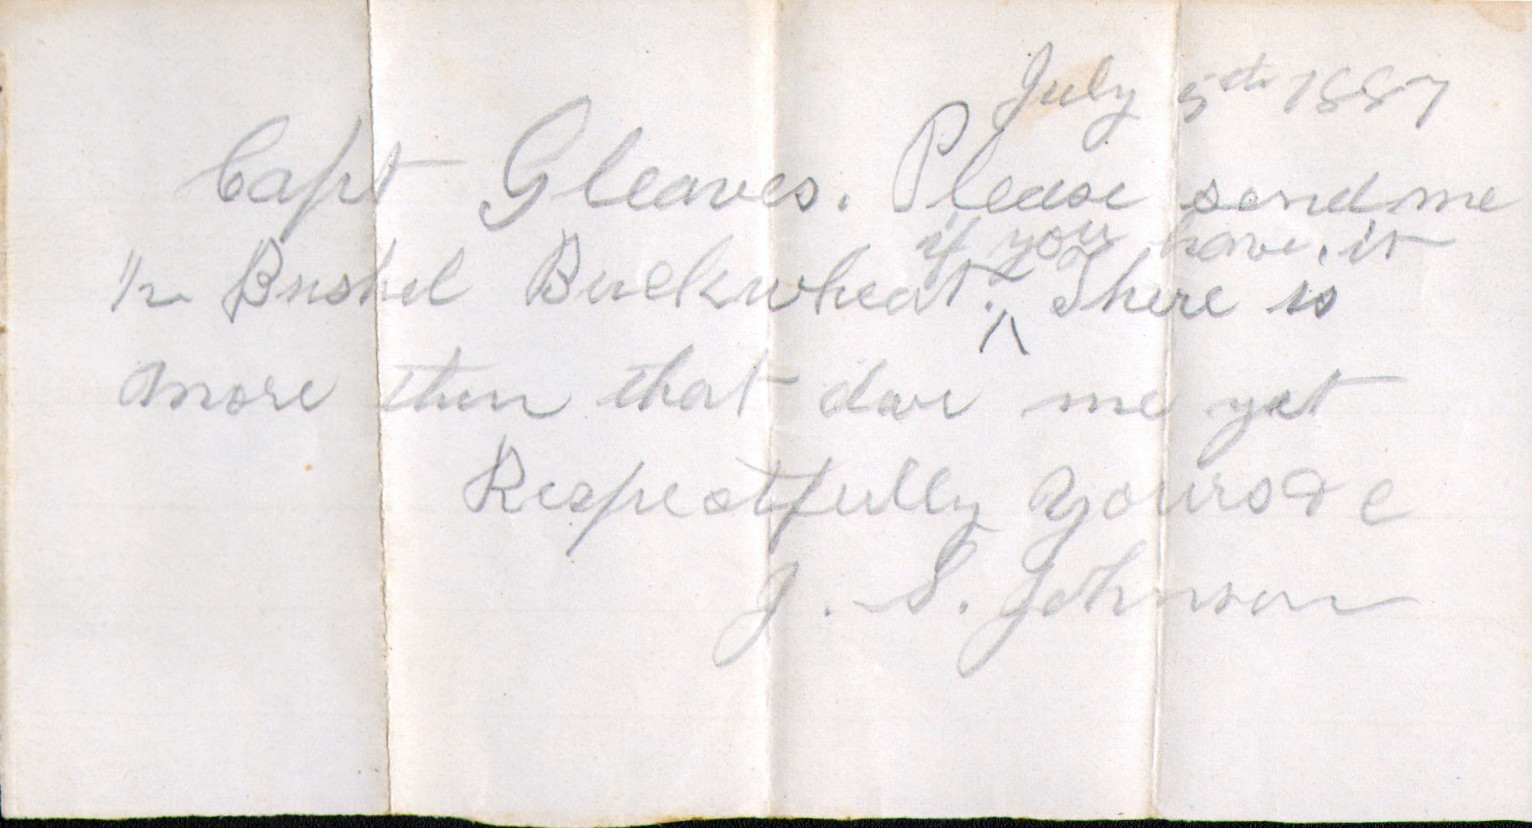 July 5th 1887
Capt Gleaves. Please send me
if you have it
1/2 Bushel Buckwheat. ^ There is
more then that due me yet
Respectfully Yours &c
J. S. Johnson